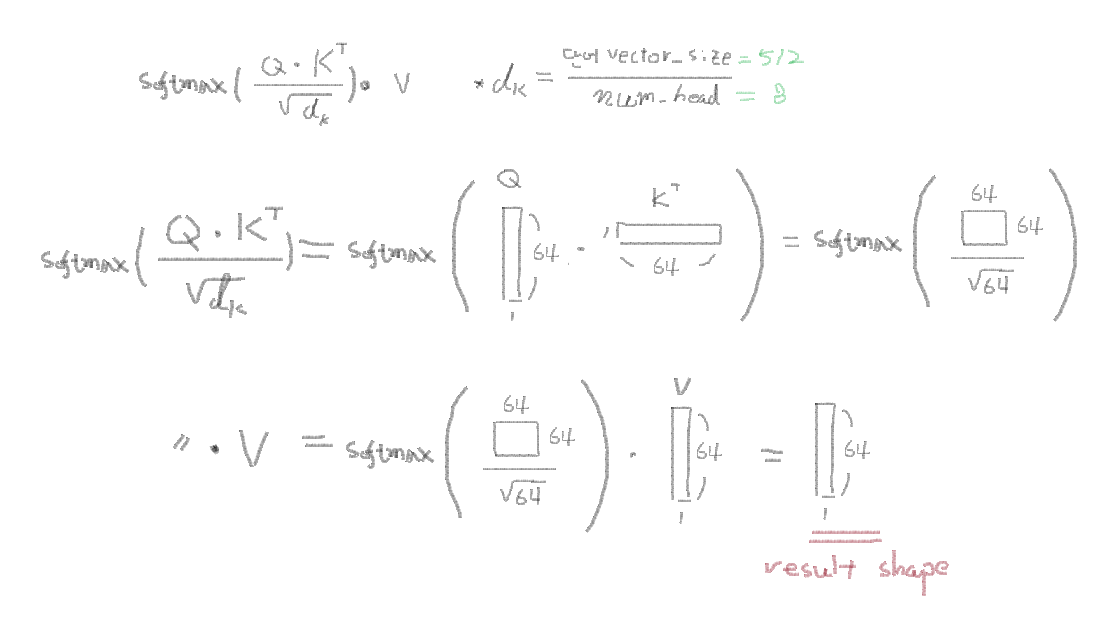 softmax( Q · K^T / √d_k ) · V * d_k = vector_size = 512 / num_head = 8
softmax( Q · K^T / √d_k ) = softmax( Q 64 1 · K^T 1 64 ) = softmax( 64 64 / √64 )
〃 · V = softmax( 64 64 / √64 ) · V 64 1 = 64 1
result shape